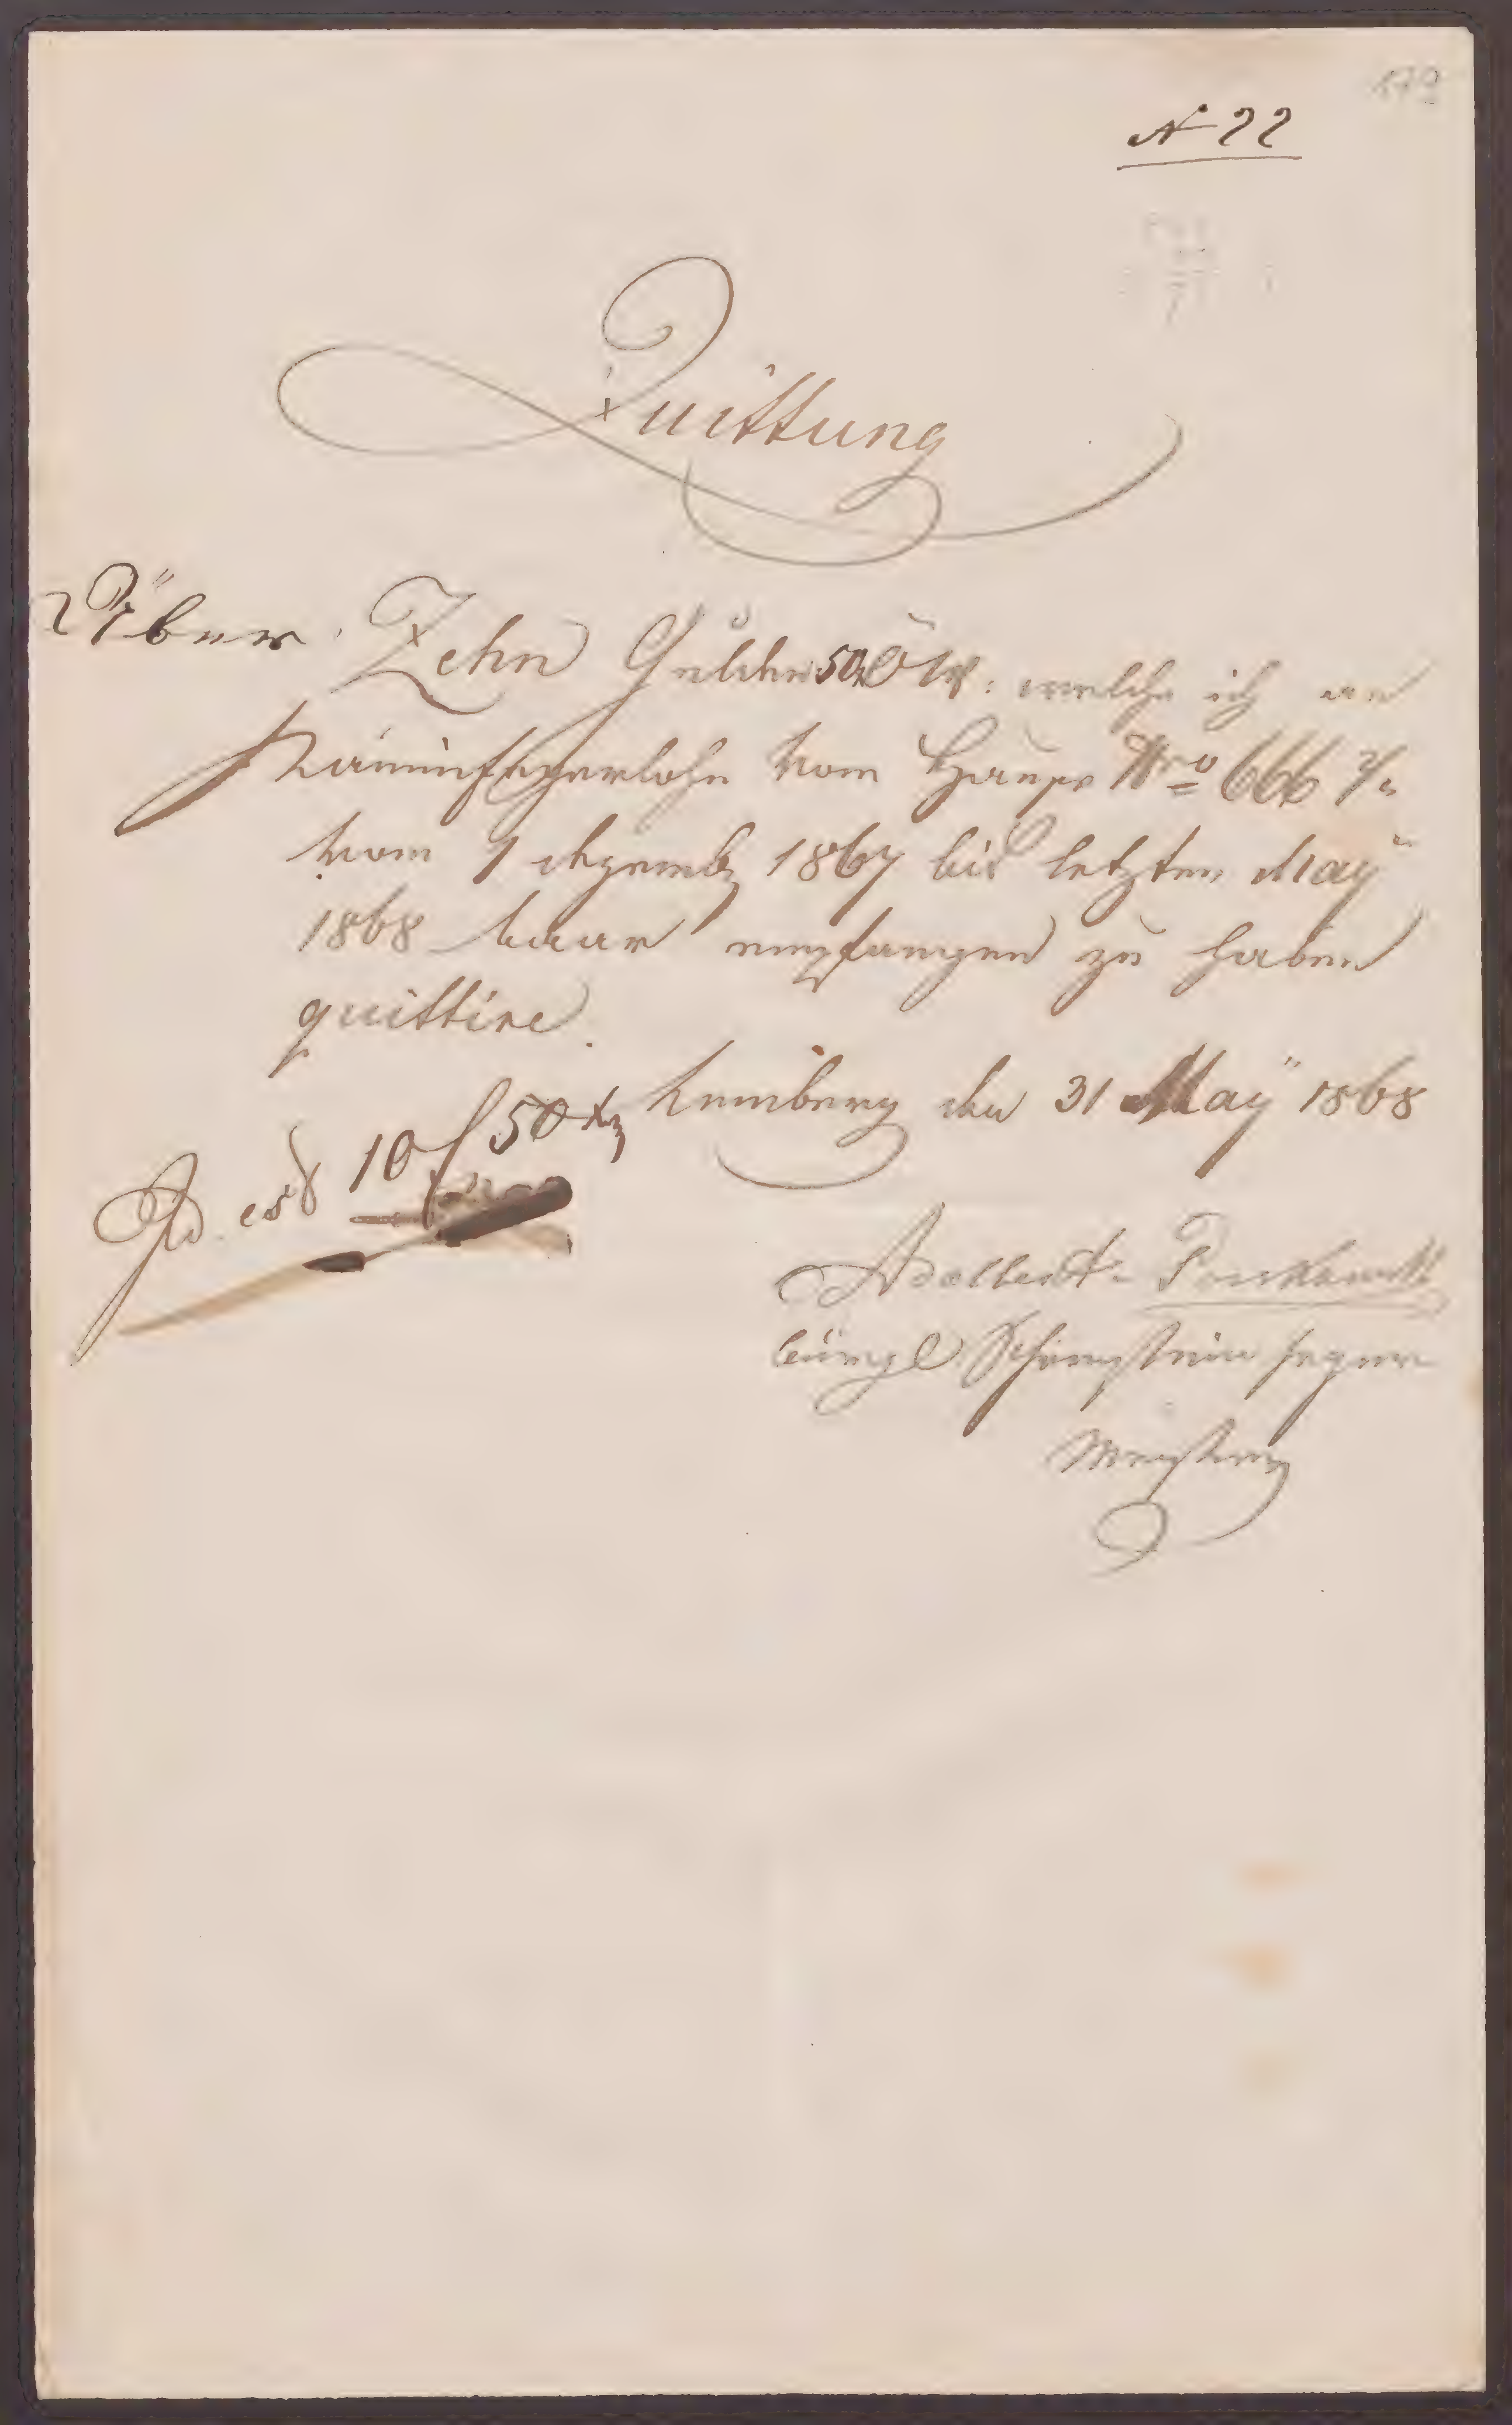 N 22
Quittung
Über Zehn Gulden 50 x ÖW: welche ich an
Kaminfegerlohn vom Hause Nro 666 2/4
vom 1 dezemb 1867 bis letzten May
1868 baar empfangen zu haben
quittire.
Lemberg den 31 May 1868
Id. est 10 f 50 xz
Adalbert
bürgl Schornstein feger
Meister